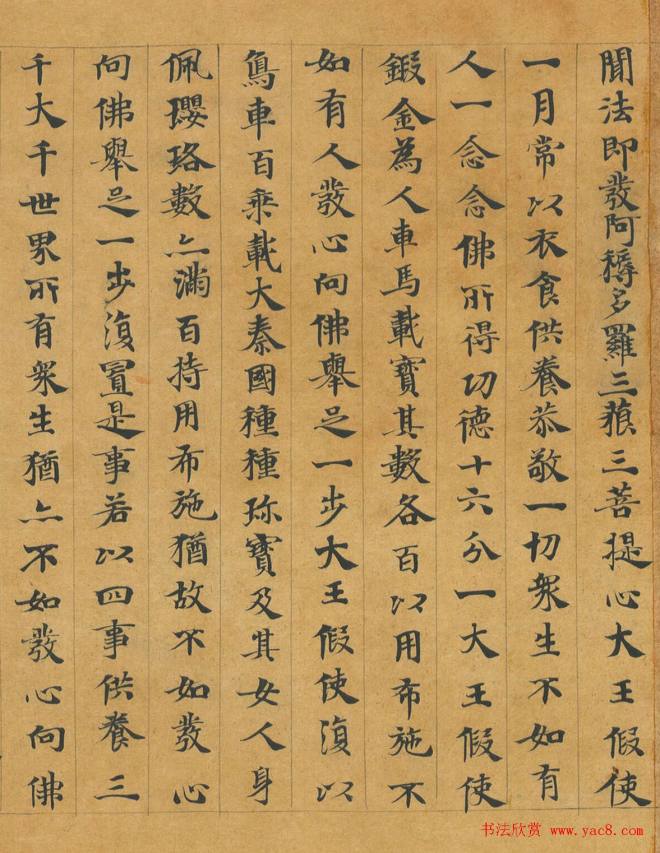 聞法即發阿耨多羅三藐三菩提心大王假使
一月常以衣食供養恭敬一切衆生不如有
人一念念佛所得功德十六分一大王假使
鍛金為人車馬載寶其數各百以用布施不
如有人發心向佛舉足一步大王假使復以
鳥車百乗載大秦國種種珎寶及其女人身
佩瓔珞數亦滿百持用布施猶故不如發心
向佛舉足一步復置是事若以四事供養三
千大千世界所有衆生猶亦不如發心向佛
书法欣赏 www.yac8.com